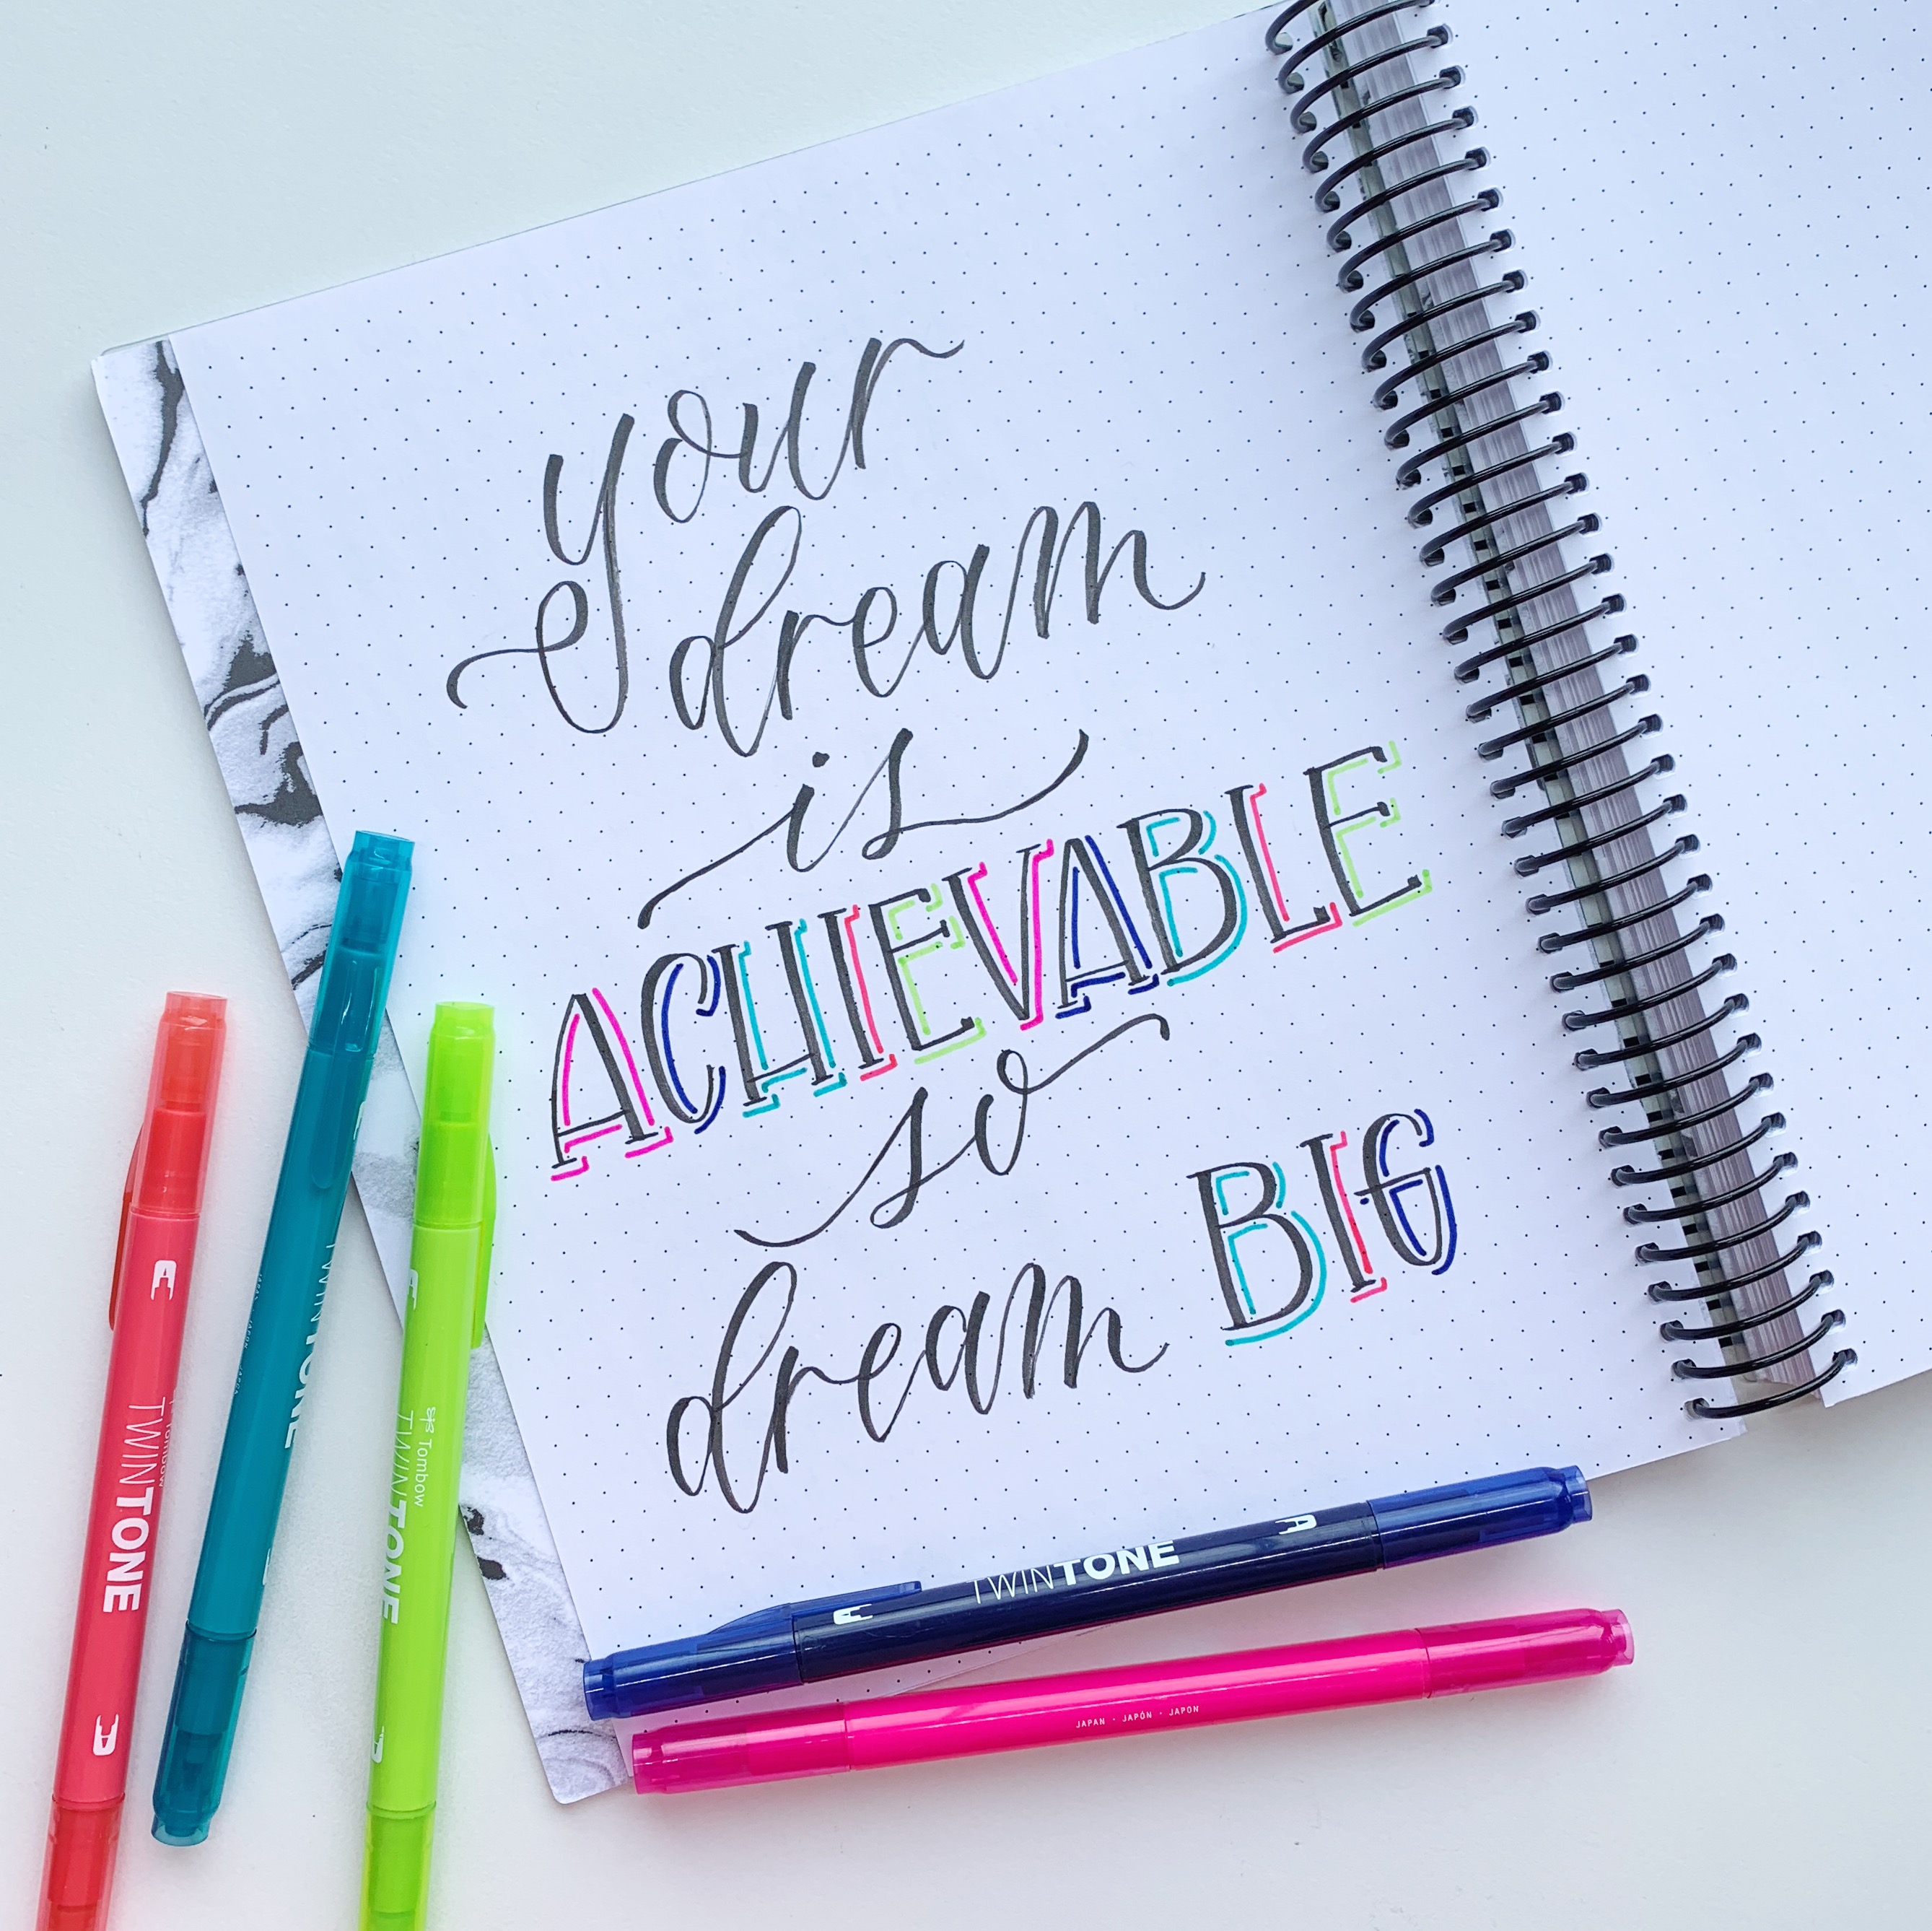 your
dream
is
ACHIEVABLE
so
dream BIG
Tombow
TWINTONE
TWINTONE
Tombow
TWINTONE
TWINTONE
JAPAN · JAPÓN · JAPON